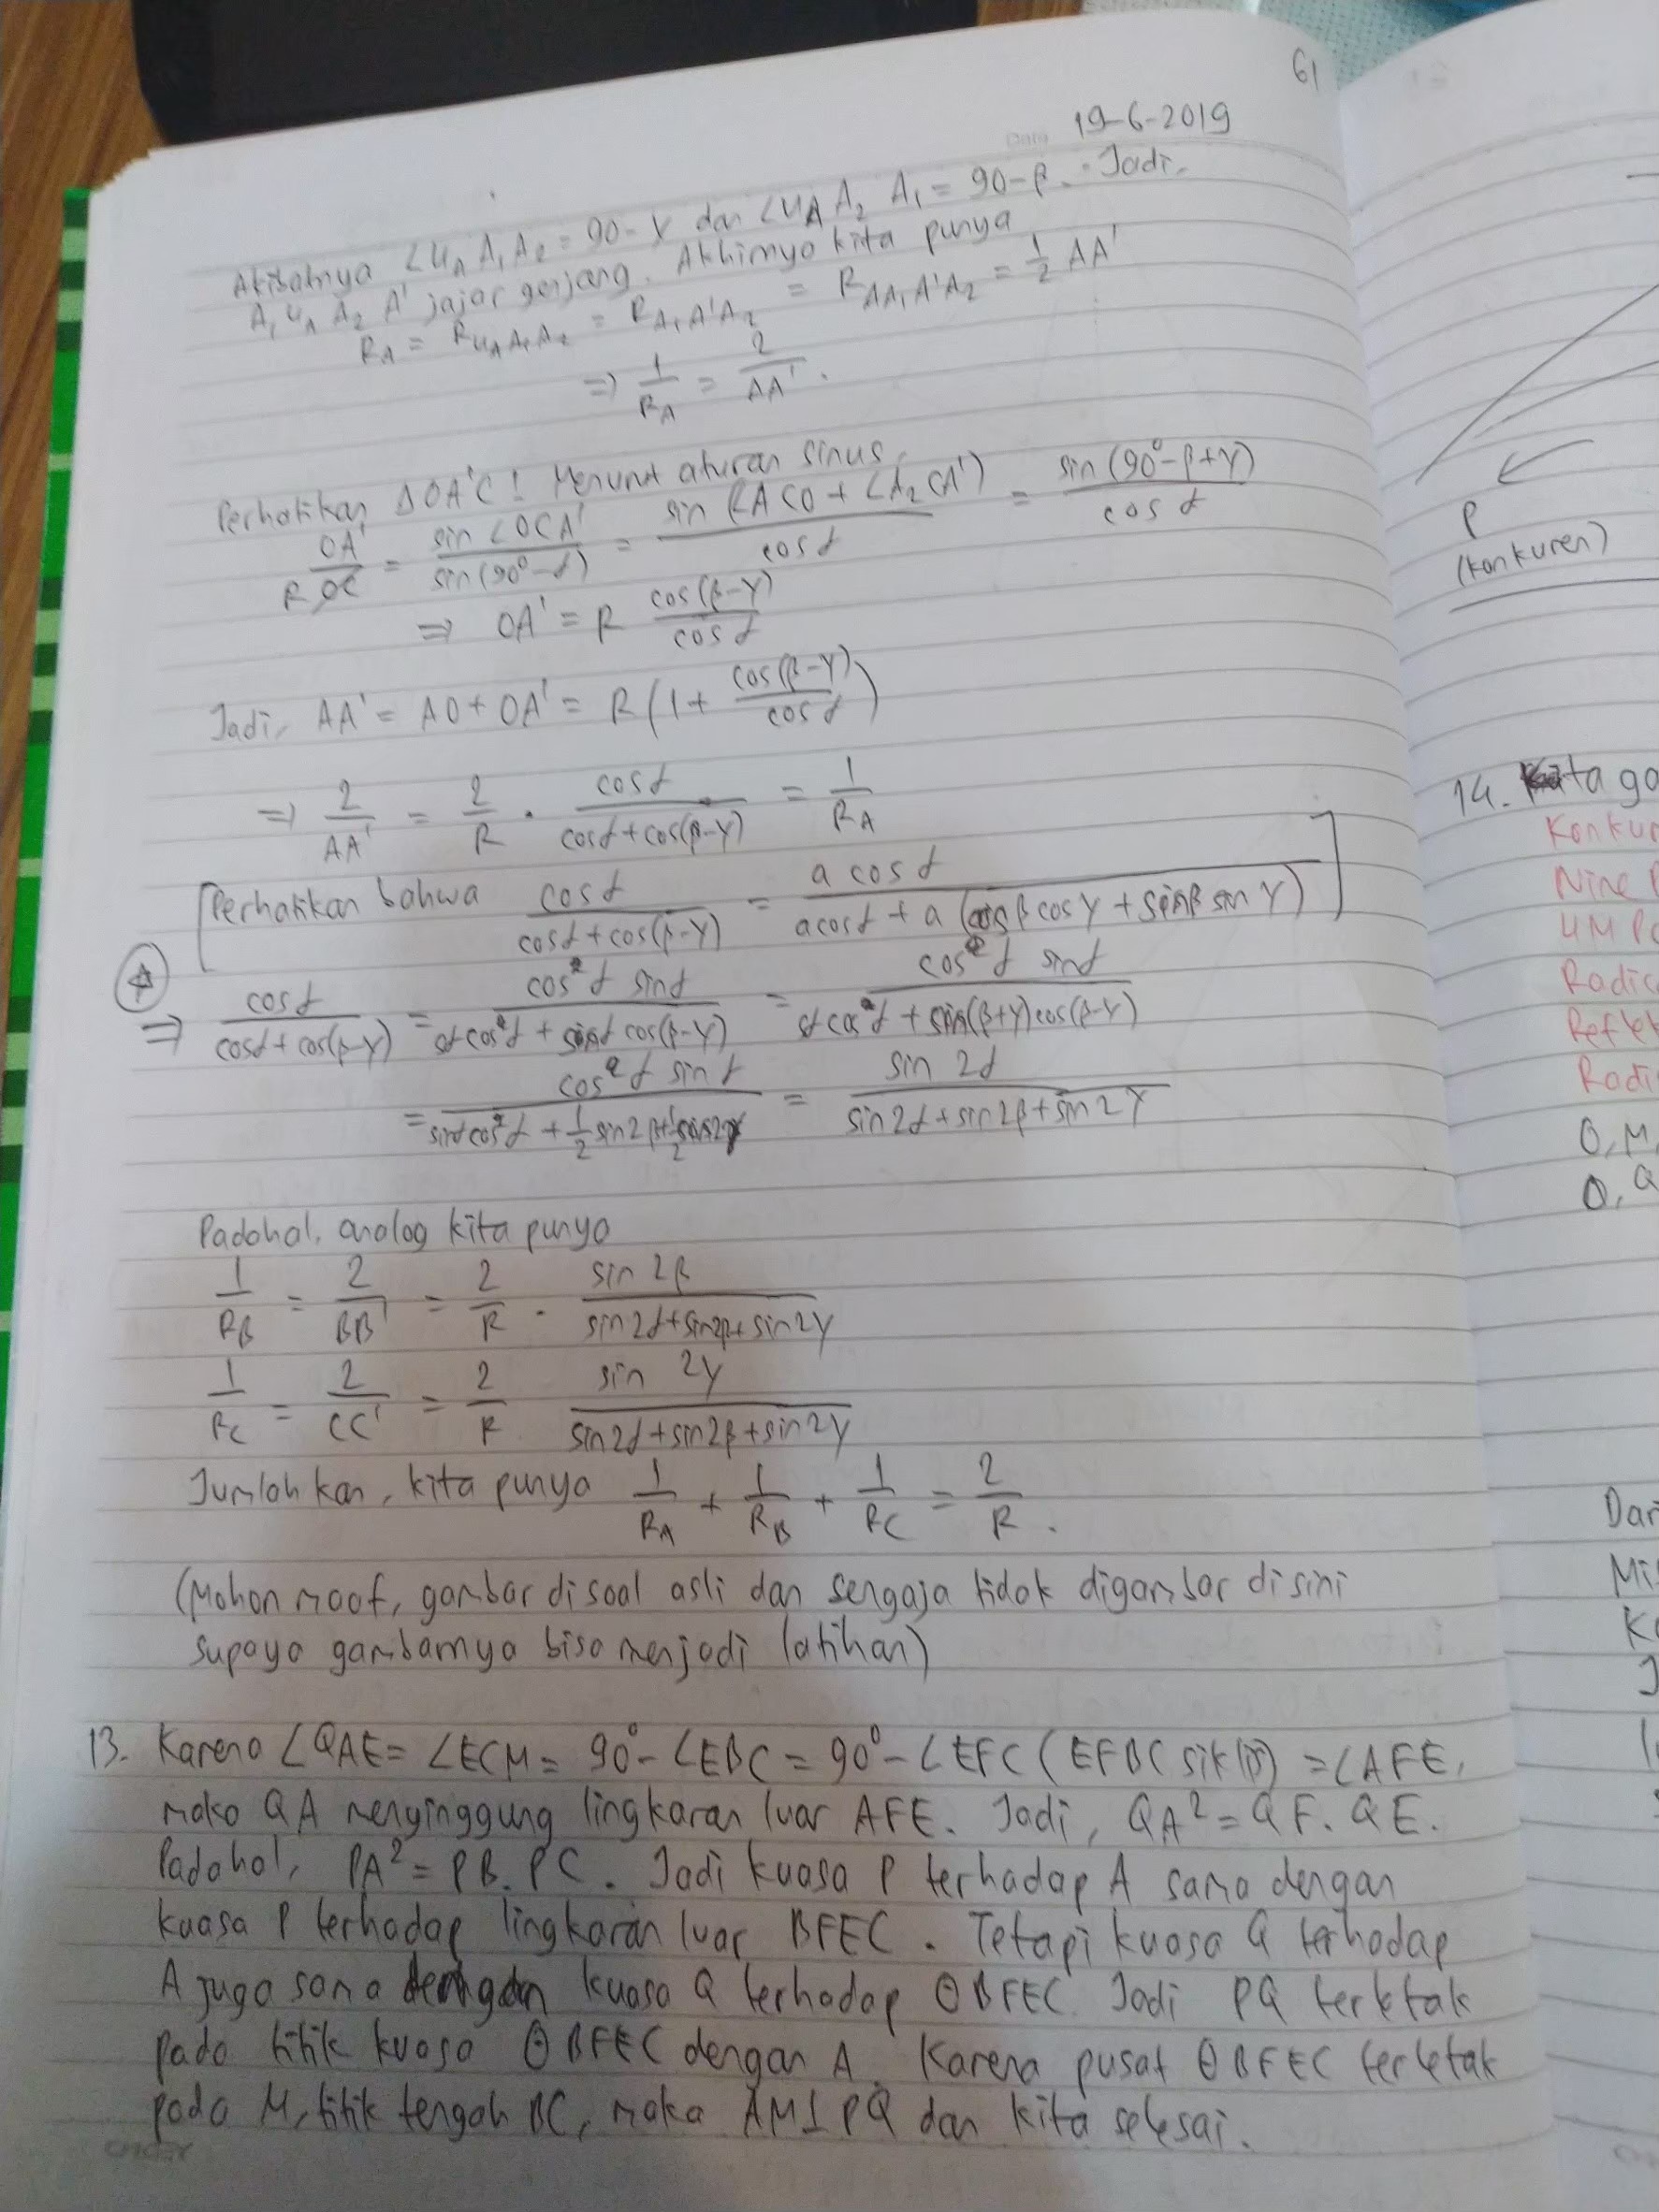 61
Date 19-6-2019
Akibatnya ∠U_A A₁A₂ = 90-γ dan ∠U_A A₂ A₁ = 90-β. Jadi,
A₁ U_A A₂ A' jajar genjang. Akhirnya kita punya
R_A = R_{U_A A₁A₂} = R_{A₁A'A₂} = R_{AA₁A'A₂} = 1/2 AA'
⇒ 1/R_A = 2/AA'.
Perhatikan ΔOA'C! Menurut aturan sinus,
R OA'/OC = sin ∠OCA'/sin(90°-α) = sin(∠ACO + ∠A₂CA')/cos α = sin(90°-β+γ)/cos α
⇒ OA' = R cos(β-γ)/cos α
Jadi, AA' = AO + OA' = R(1 + cos(β-γ)/cos α)
⇒ 2/AA' = 2/R · cos α/(cos α + cos(β-γ)) = 1/R_A
[Perhatikan bahwa cos α/(cos α + cos(β-γ)) = a cos α/(a cos α + a(cos β cos γ + sin β sin γ))]
⇒ cos α/(cos α + cos(β-γ)) = cos α sin α/(α cos α + sin α cos(β-γ)) = cos α sin α/(α cos α + sin(β+γ)cos(β-γ))
= cos α sin α/(sin α cos α + 1/2 sin 2β + 1/2 sin 2γ) = sin 2α/(sin 2α + sin 2β + sin 2γ)
Padahal, analog kita punya
1/R_B = 2/BB' = 2/R · sin 2β/(sin 2α + sin 2β + sin 2γ)
1/R_C = 2/CC' = 2/R sin 2γ/(sin 2α + sin 2β + sin 2γ)
Jumlahkan, kita punya 1/R_A + 1/R_B + 1/R_C = 2/R.
(Mohon maaf, gambar di soal asli dan sengaja tidak digambar disini
supaya gambarnya bisa menjadi latihan)
13. Karena ∠QAE = ∠ECM = 90° - ∠EBC = 90° - ∠EFC (EFBC siklis) = ∠AFE,
maka QA menyinggung lingkaran luar AFE. Jadi, QA² = QF.QE.
Padahal, PA² = PB.PC. Jadi kuasa P terhadap A sama dengan
kuasa P terhadap lingkaran luar BFEC. Tetapi kuasa Q terhadap
A juga sama dengan kuasa Q terhadap ⊙BFEC. Jadi PQ terletak
pada titik kuasa ⊙BFEC dengan A. Karena pusat ⊙BFEC terletak
pada M, titik tengah BC, maka AM⊥PQ dan kita selesai.
P
(konkuren)
14. Kita
O, M,
O, Q